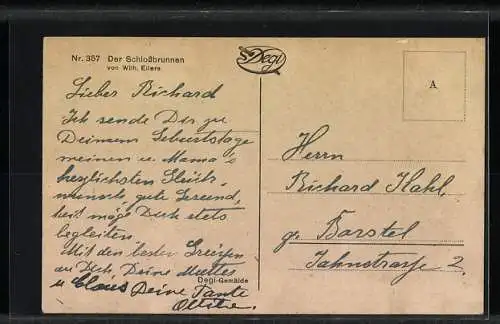 Nr. 357 Der Schloßbrunnen
von Wilh. Eilers
Degi
A
Lieber Richard
Ich sende Dir zu
Deinem Geburtstage
meinen u. Mama's
herzlichsten Glück-
wunsch, gute Gesund-
heit möge Dich stets
begleiten.
Mit den besten Grüßen
an Dich, Deine Mutter
u Claus Deine Tante
Degi-Gemälde
Herrn
Richard Hahl,
Barstel
Jahnstraße 2.